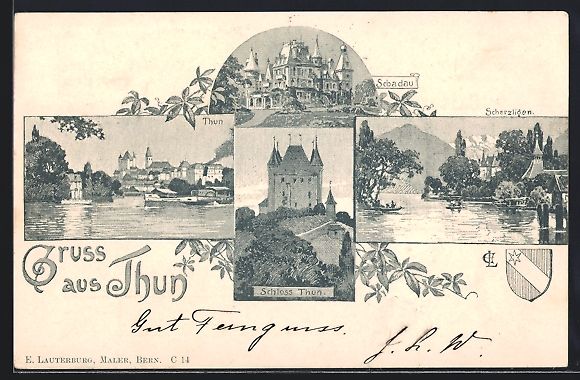 Schadau
Thun
Scherzligen.
Gruss
aus Thun
Schloss Thun.
CL
Gut Ferngruss.
J. L. W.
E. Lauterburg, Maler, Bern. C 14